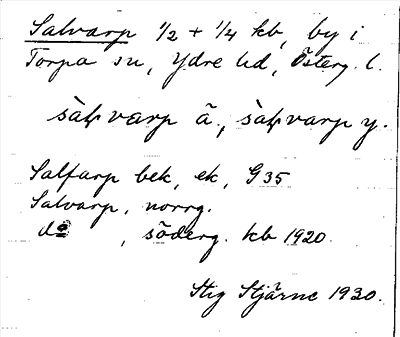 Salvarp 1/2 + 1/4 kb, by i
Torpa sn, Ydre hd, Österg. l.
sàlvarp ä., sàlvarp y.
Salfarp bek, ek, G 35
Salvarp, norrg.
do , söderg. kb 1920.
Stig Stjärne 1930.